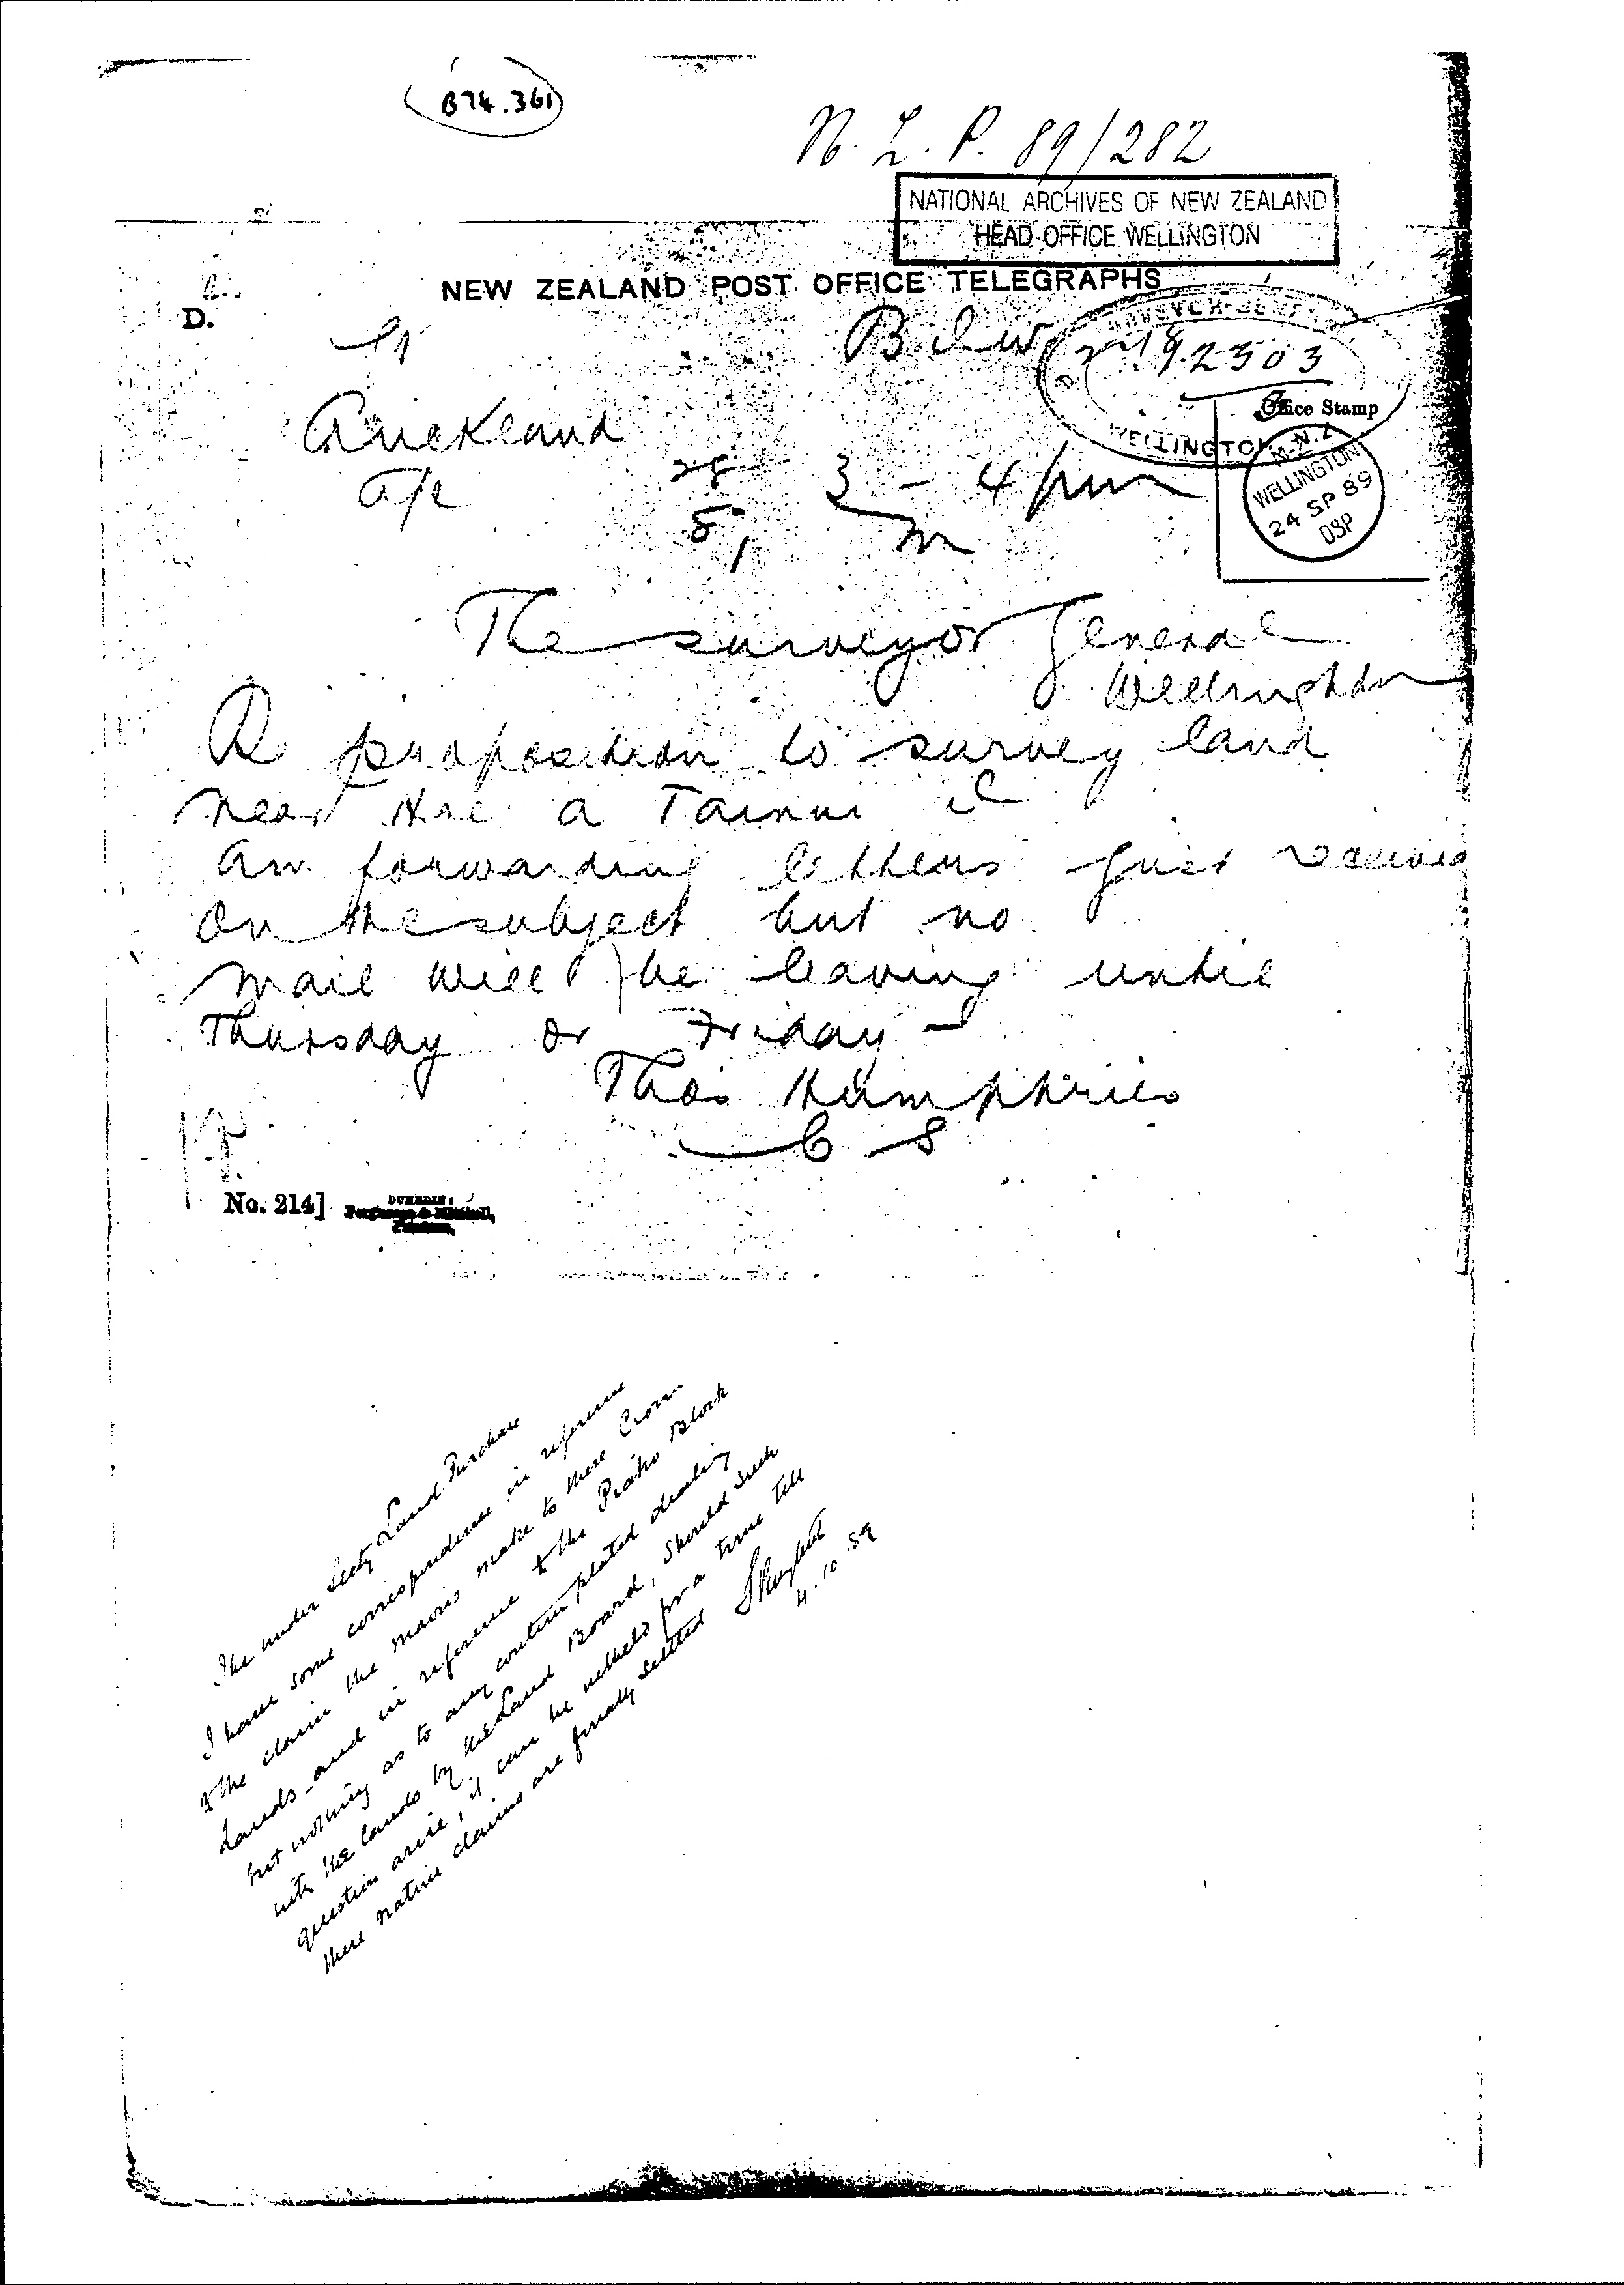 B74.361
N. L. P. 89/282
NATIONAL ARCHIVES OF NEW ZEALAND
HEAD OFFICE WELLINGTON
NEW ZEALAND POST OFFICE TELEGRAPHS
D.
92303
Office Stamp
Auckland
WELLINGTON
3 - 4 pm
WELLINGTON
24 SP 89
The Surveyor General
Wellington
Re proposition to survey land
near
am forwarding letters just received
on the subject but no
mail will be leaving until
Thursday or Friday
Thos Humphries
C S
No. 214]
DUNEDIN:
The under Secty Land Purchase
I have some correspondence in reference
to the claim the maoris make to these Crown
Lands and in reference to the Piako Block
but nothing as to any contemplated dealing
with the lands by the Land Board, Should such
question arise, it can be withheld for a time till
these native claims are finally settled
4.10.89